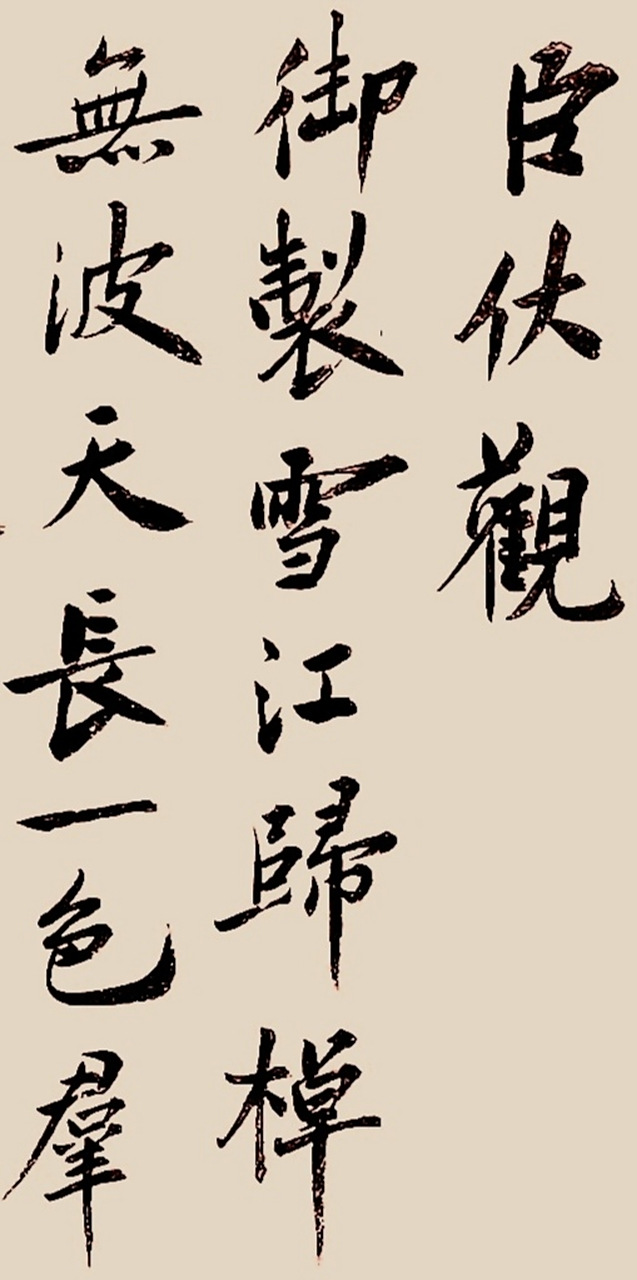 臣伏觀
御製雪江歸棹
無波天長一色羣